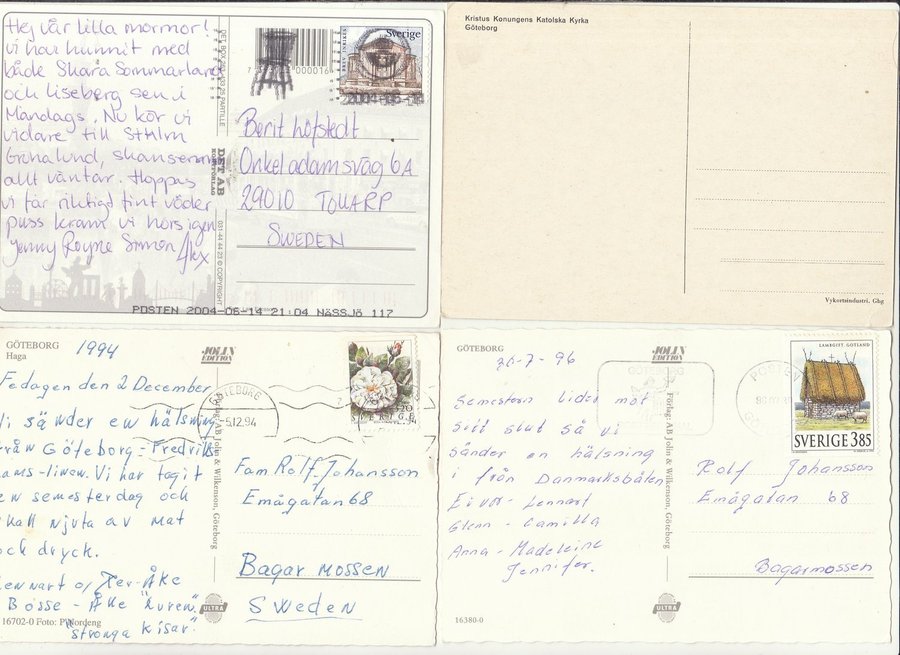 Hej vår lilla mormor!
Vi har hunnit med
både Skara Sommarland
och Liseberg sen i
Måndags. Nu kör vi
vidare till Sthlm
Gröna lund, skansen
allt väntar. Hoppas
vi får riktigt fint väder
puss kram vi hörs igen
Jenny Royne Simon Alex
DST AB
KORTFÖRLAG
031-44 44 23 © COPYRIGHT
000016
BREV INRIKES
Sverige
Berit Höfstedt
Onkel adamsväg 6A
29010 TOLLARP
SWEDEN
POSTEN 2004-06-14 21:04 NÄSSJÖ 117
Kristus Konungens Katolska Kyrka
Göteborg
Vykortsindustri. Gbg
GÖTEBORG
Haga
1994
Fedagen den 2 December
Vi sänder en hälsning
från Göteborg - Fredriks
hams-linen. Vi har tagit
en semesterdag och
skall njuta av mat
och dryck.
Lennart o/ Per-Åke
Bosse - Åke "Kuren"
"stronga kisar"
16702-0 Foto: P Nordeng
JOLIN
EDITION
Förlag: AB Jolin & Wilkenson, Göteborg
ULTRA
GÖTEBORG
-5.12.94
SVERIGE
Fam Rolf. Johansson
Emågatan 68
Bagarmossen
Sweden
GÖTEBORG
20-7-96
Semestern lider mot
sitt slut så vi
sänder en hälsning
i från Danmarksbåten
Eivor - Lennart
Glenn - Camilla
Anna - Madeleine
Jennifer.
16380-0
JOLIN
EDITION
Förlag: AB Jolin & Wilkenson, Göteborg
ULTRA
POSTEN
LAMBGIFT GOTLAND
SVERIGE 385
Rolf Johansson
Emågatan 68
Bagarmossen